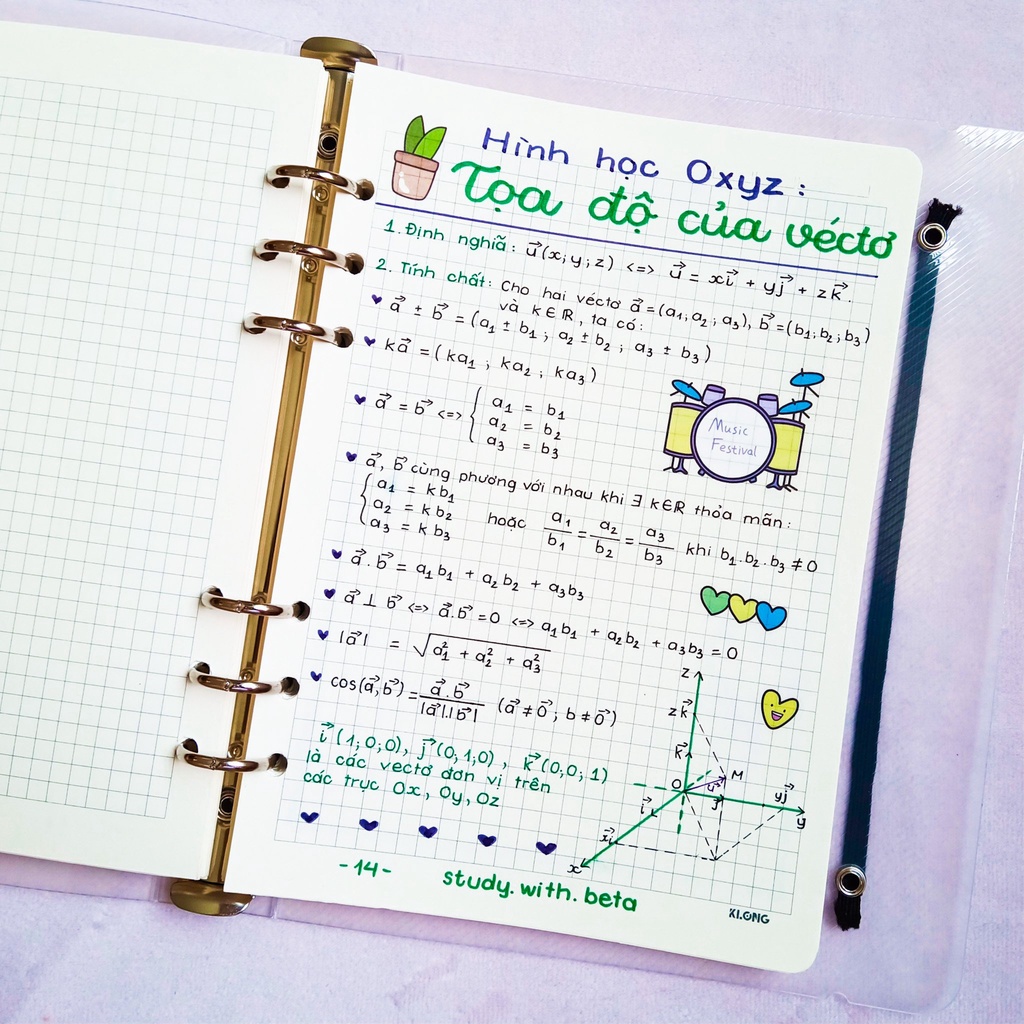 Hình học Oxyz:
Tọa độ của véctơ
1. Định nghĩã: u⃗(x; y; z) <=> u⃗ = xi⃗ + yj⃗ + zk⃗.
2. Tính chất: Cho hai véctơ a⃗ = (a₁; a₂; a₃), b⃗ = (b₁; b₂; b₃)
và k ∈ ℝ, ta có:
a⃗ ± b⃗ = (a₁ ± b₁; a₂ ± b₂; a₃ ± b₃)
ka⃗ = (ka₁; ka₂; ka₃)
a⃗ = b⃗ <=> { a₁ = b₁
a₂ = b₂
a₃ = b₃
Music
Festival
a⃗, b⃗ cùng phương với nhau khi ∃ k∈ℝ thỏa mãn:
{ a₁ = kb₁
a₂ = kb₂
a₃ = kb₃
hoặc a₁/b₁ = a₂/b₂ = a₃/b₃ khi b₁.b₂.b₃ ≠ 0
a⃗.b⃗ = a₁b₁ + a₂b₂ + a₃b₃
a⃗ ⊥ b⃗ <=> a⃗.b⃗ = 0 <=> a₁b₁ + a₂b₂ + a₃b₃ = 0
|a⃗| = √(a₁² + a₂² + a₃²)
cos(a⃗, b⃗) = a⃗.b⃗ / |a⃗|.|b⃗| (a⃗ ≠ 0⃗; b ≠ 0⃗)
i⃗(1; 0; 0), j⃗(0; 1; 0), k⃗(0; 0; 1)
là các vectơ đơn vị trên
các trục Ox, Oy, Oz
z
zk⃗
k⃗
M
O
u⃗
j⃗
yj⃗
y
i⃗
xi⃗
x
-14-
study.with.beta
KLONG